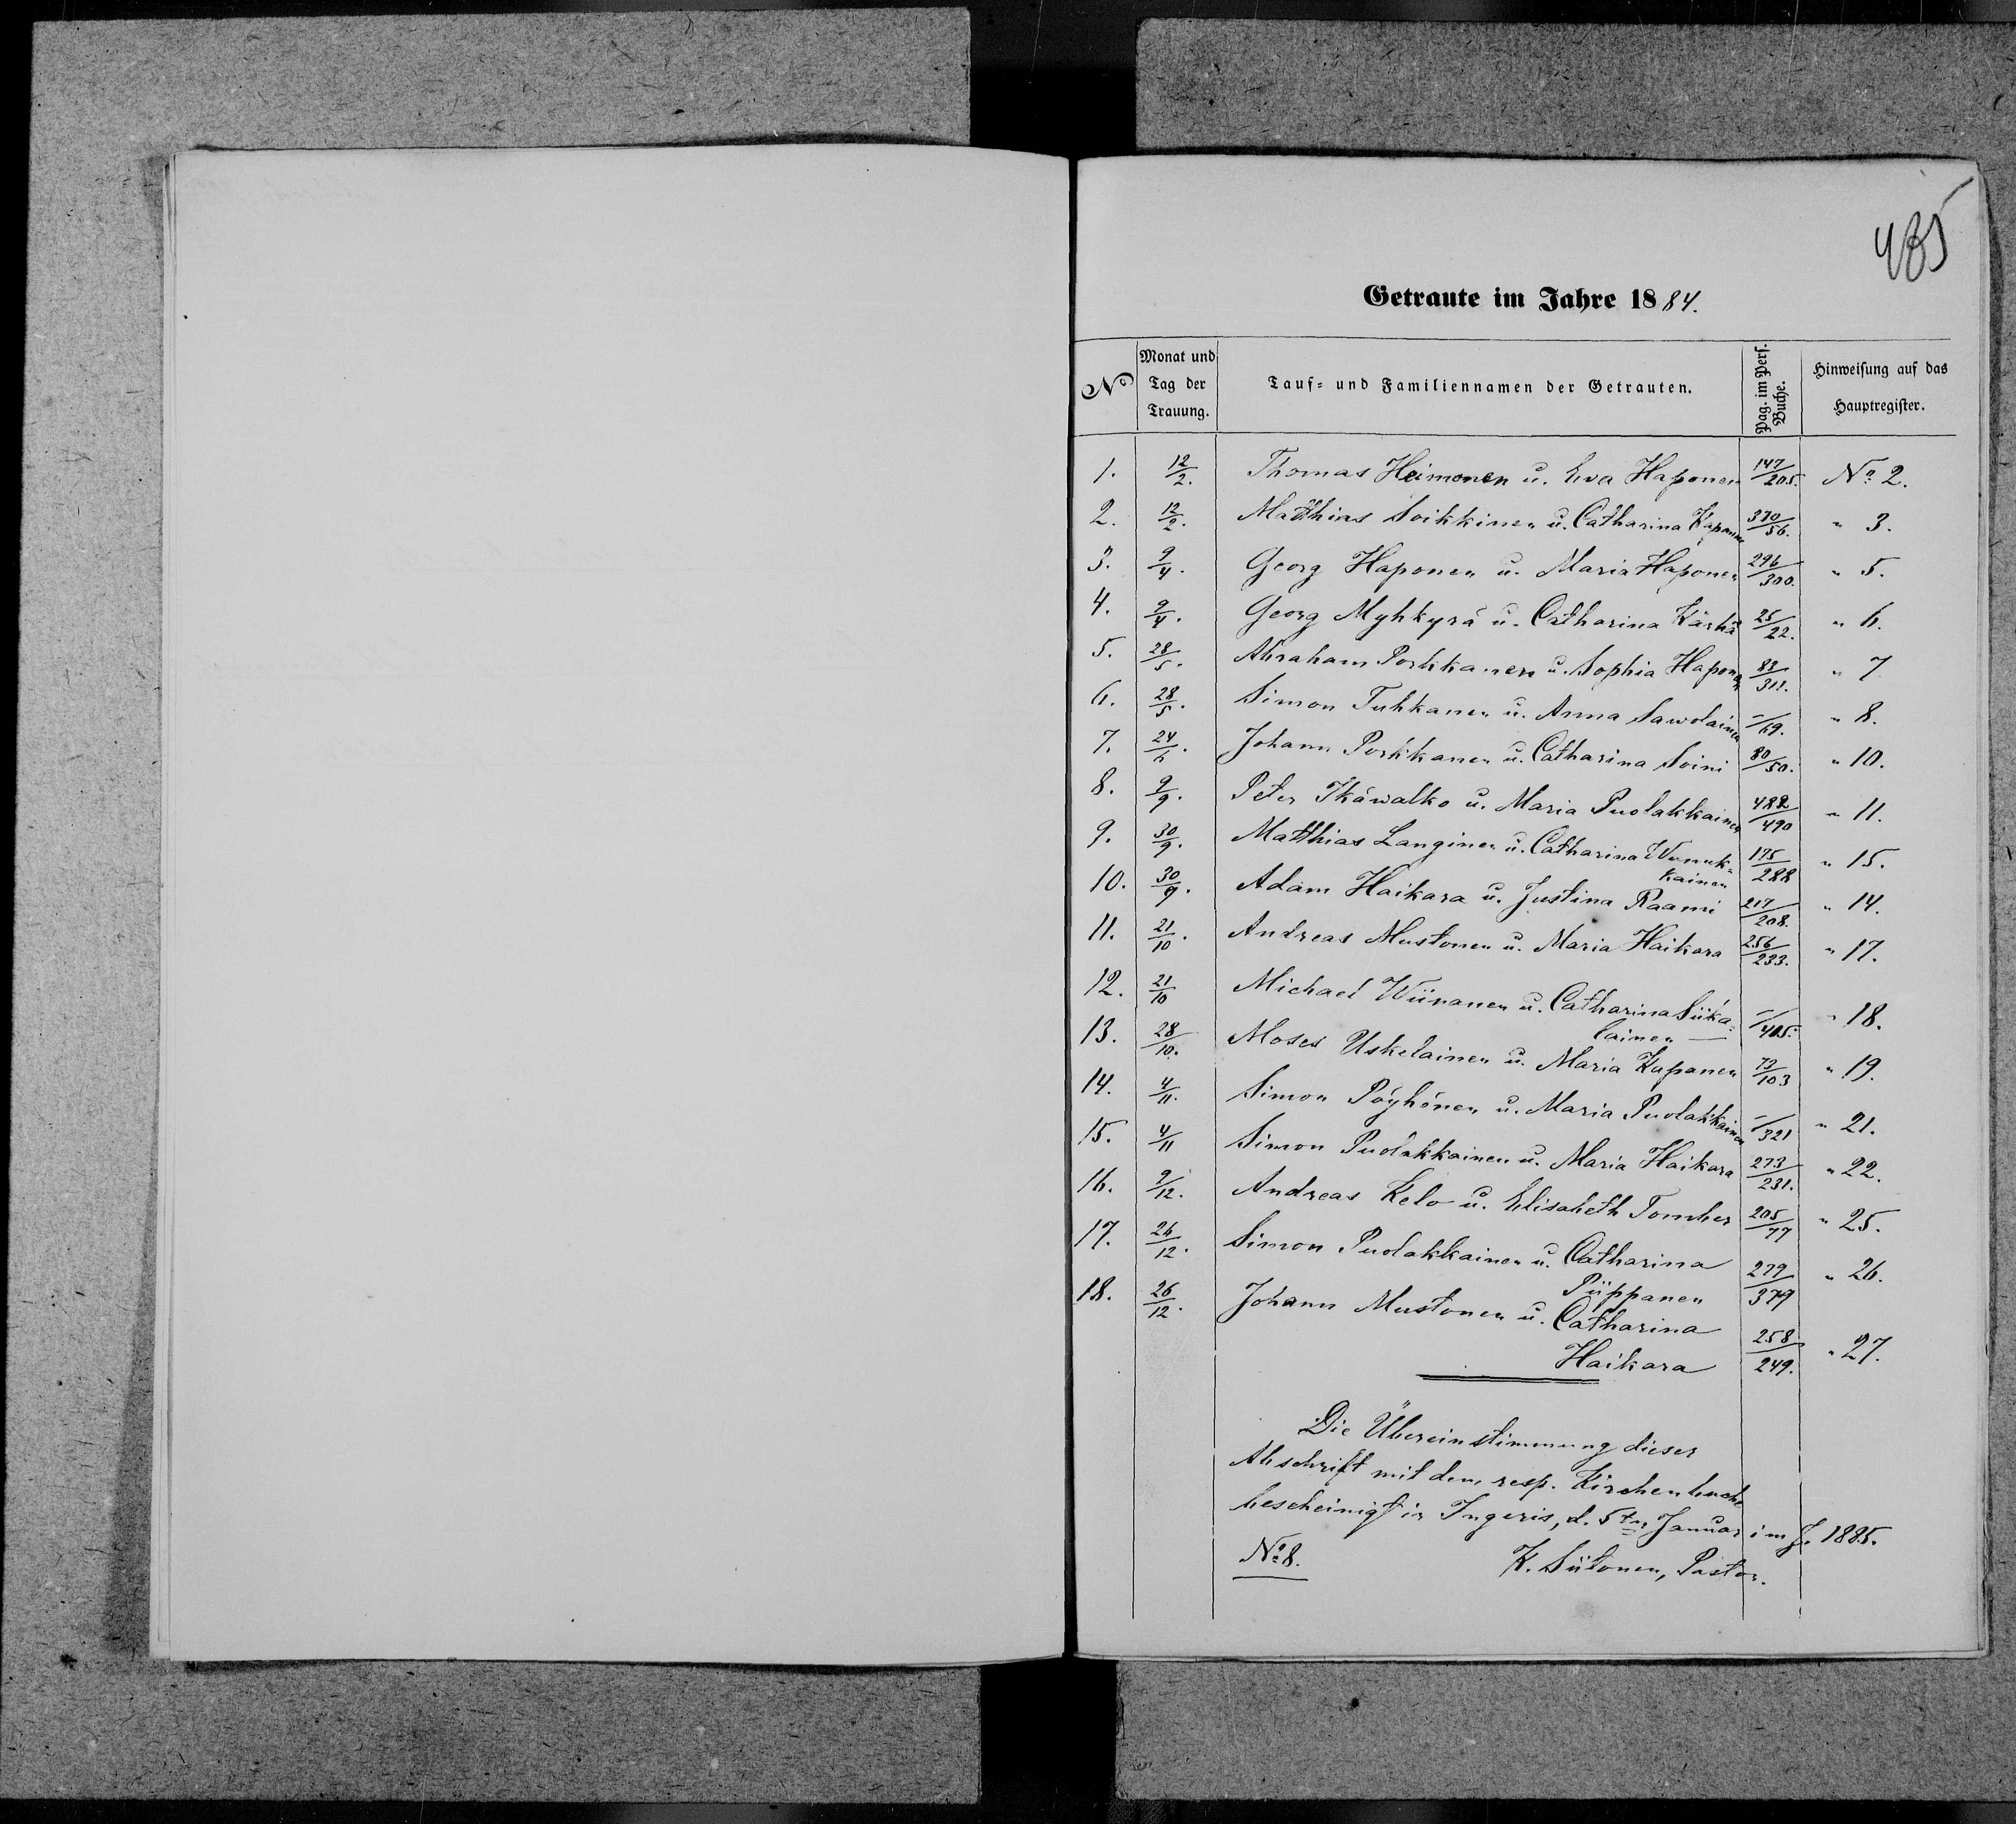 435
Getraute im Jahre 1884.
No Monat und Tag der Trauung. Tauf- und Familiennamen der Getrauten. Pag. im Pers. Buche. Hinweisung auf das Hauptregister.
1. 12/2. Thomas Heimonen u. Eva Haponen 147/205. No 2.
2. 12/2. Matthias Soikkinen u. Catharina Kapanen 370/56. " 3.
3. 9/4. Georg Haponen u. Maria Haponen 296/300. " 5.
4. 9/4. Georg Myhkyrä u. Catharina Kärhä 25/22. " 6.
5. 28/5. Abraham Porkkanen u. Sophia Haponen 83/311. " 7
6. 28/5. Simon Tuhkanen u. Anna Sawolainen -/69. " 8.
7. 24/6. Johann Porkkanen u. Catharina Soini 80/50. " 10.
8. 9/9. Peter Ikäwalko u. Maria Puolakkainen 482/490 " 11.
9. 30/9. Matthias Langinen u. Catharina Wanuk=
kainen 175/288 " 15.
10. 30/9. Adam Haikara u. Justina Raami 217/208. " 14.
11. 21/10. Andreas Mustonen u. Maria Haikara 256/233. " 17.
12. 21/10 Michael Wiinanen u. Catharina Siikä=
lainen — -/405. " 18.
13. 28/10. Moses Uskelainen u. Maria Kupanen 73/103 " 19.
14. 4/11. Simon Pöyhönen u. Maria Puolakkainen -/321 " 21.
15. 4/11 Simon Puolakkainen u. Maria Haikara 273/231. " 22.
16. 9/12. Andreas Kelo u. Elisabeth Tomber 205/77 " 25.
17. 26/12. Simon Puolakkainen u. Catharina
Piippanen 279/379 " 26.
18. 26/12. Johann Mustonen u. Catharina
Haikara 258/249. " 27.
Die Übereinstimmung dieser
Abschrift mit dem resp. Kirchenbuche
bescheinigt in Ingeris, d. 5ten Januar im J. 1885.
No 8. K. Siitonen, Pastor.